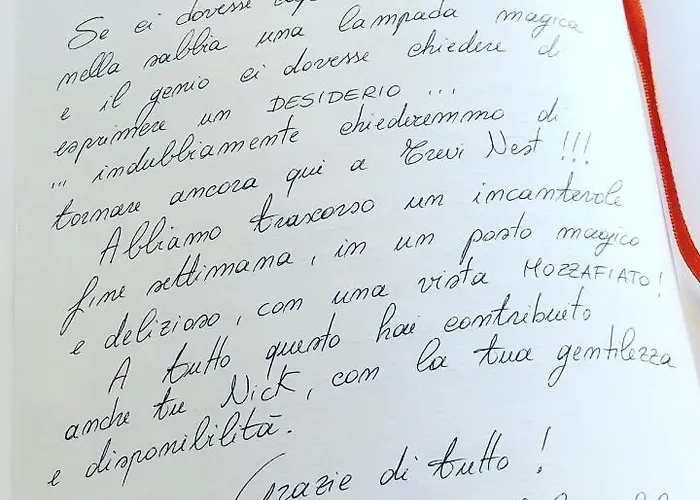 Se ci dovesse
nella sabbia una lampada magica
e il genio ci dovesse chiedere di
esprimere un DESIDERIO ...
... indubbiamente chiederemmo di
tornare ancora qui a Trevi Nest !!!
Abbiamo trascorso un incantevole
fine settimana, in un posto magico
e delizioso, con una vista MOZZAFIATO!
A tutto questo hai contribuito
anche tu Nick, con la tua gentilezza
e disponibilità.
Grazie di tutto !